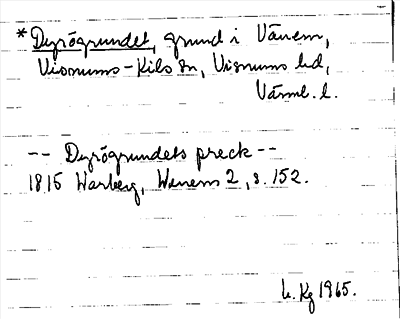 *Dyrögrundet, grund i Vänern,
Visnums-Kils sn, Visnums hd,
Värml. l.
-- Dyrögrundets preck --
1815 Warberg, Wenern 2, s. 152.
L. Kg 1965.